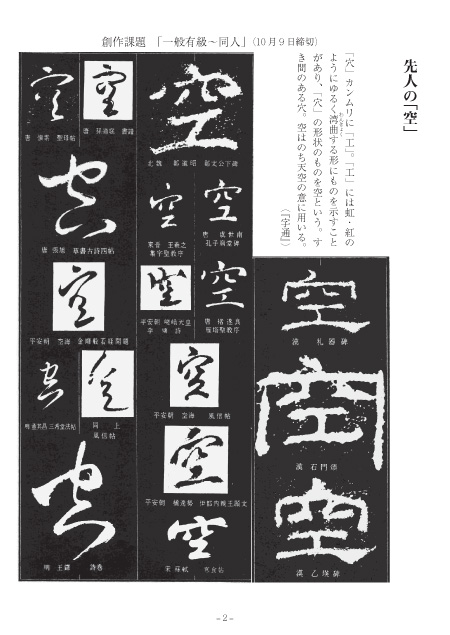 創作課題 「一般有級~同人」(10月9日締切)
先人の「空」
「穴」カンムリに「工」。「工」には虹・紅の
ようにゆるく湾曲する形にものを示すこと
があり、「穴」の形状のものを空という。す
き間のある穴。空はのち天空の意に用いる。
(『字通』)
空
漢 礼器碑
空
漢 石門頌
空
漢 乙瑛碑
空
北魏 鄭道昭 鄭文公下碑
空
唐 虞世南
孔子廟堂碑
空
東晋 王羲之
集字聖教序
空
唐 褚遂良
雁塔聖教序
空
平安朝 嵯峨天皇
李嶠詩
空
平安朝 空海 風信帖
空
平安朝 橘逸勢 伊都内親王願文
空
宋 蘇軾 寒食帖
空
唐 孫過庭 書譜
空
唐 懐素 聖母帖
空
唐 張旭 草書古詩四帖
空
平安朝 空海 金剛般若経開題
空
同上
風信帖
空
明 董其昌 三希堂法帖
空
明 王鐸 詩巻
-2-